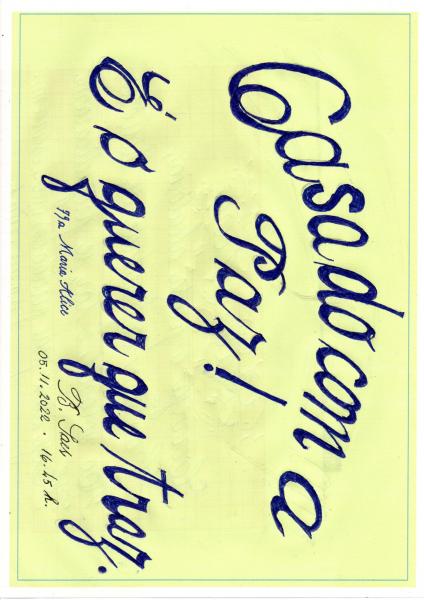 Casado com a
Paz!
É o querer que traz.
Mª Maria Alice
B. Saes
05.11.2022. 16.45 h.